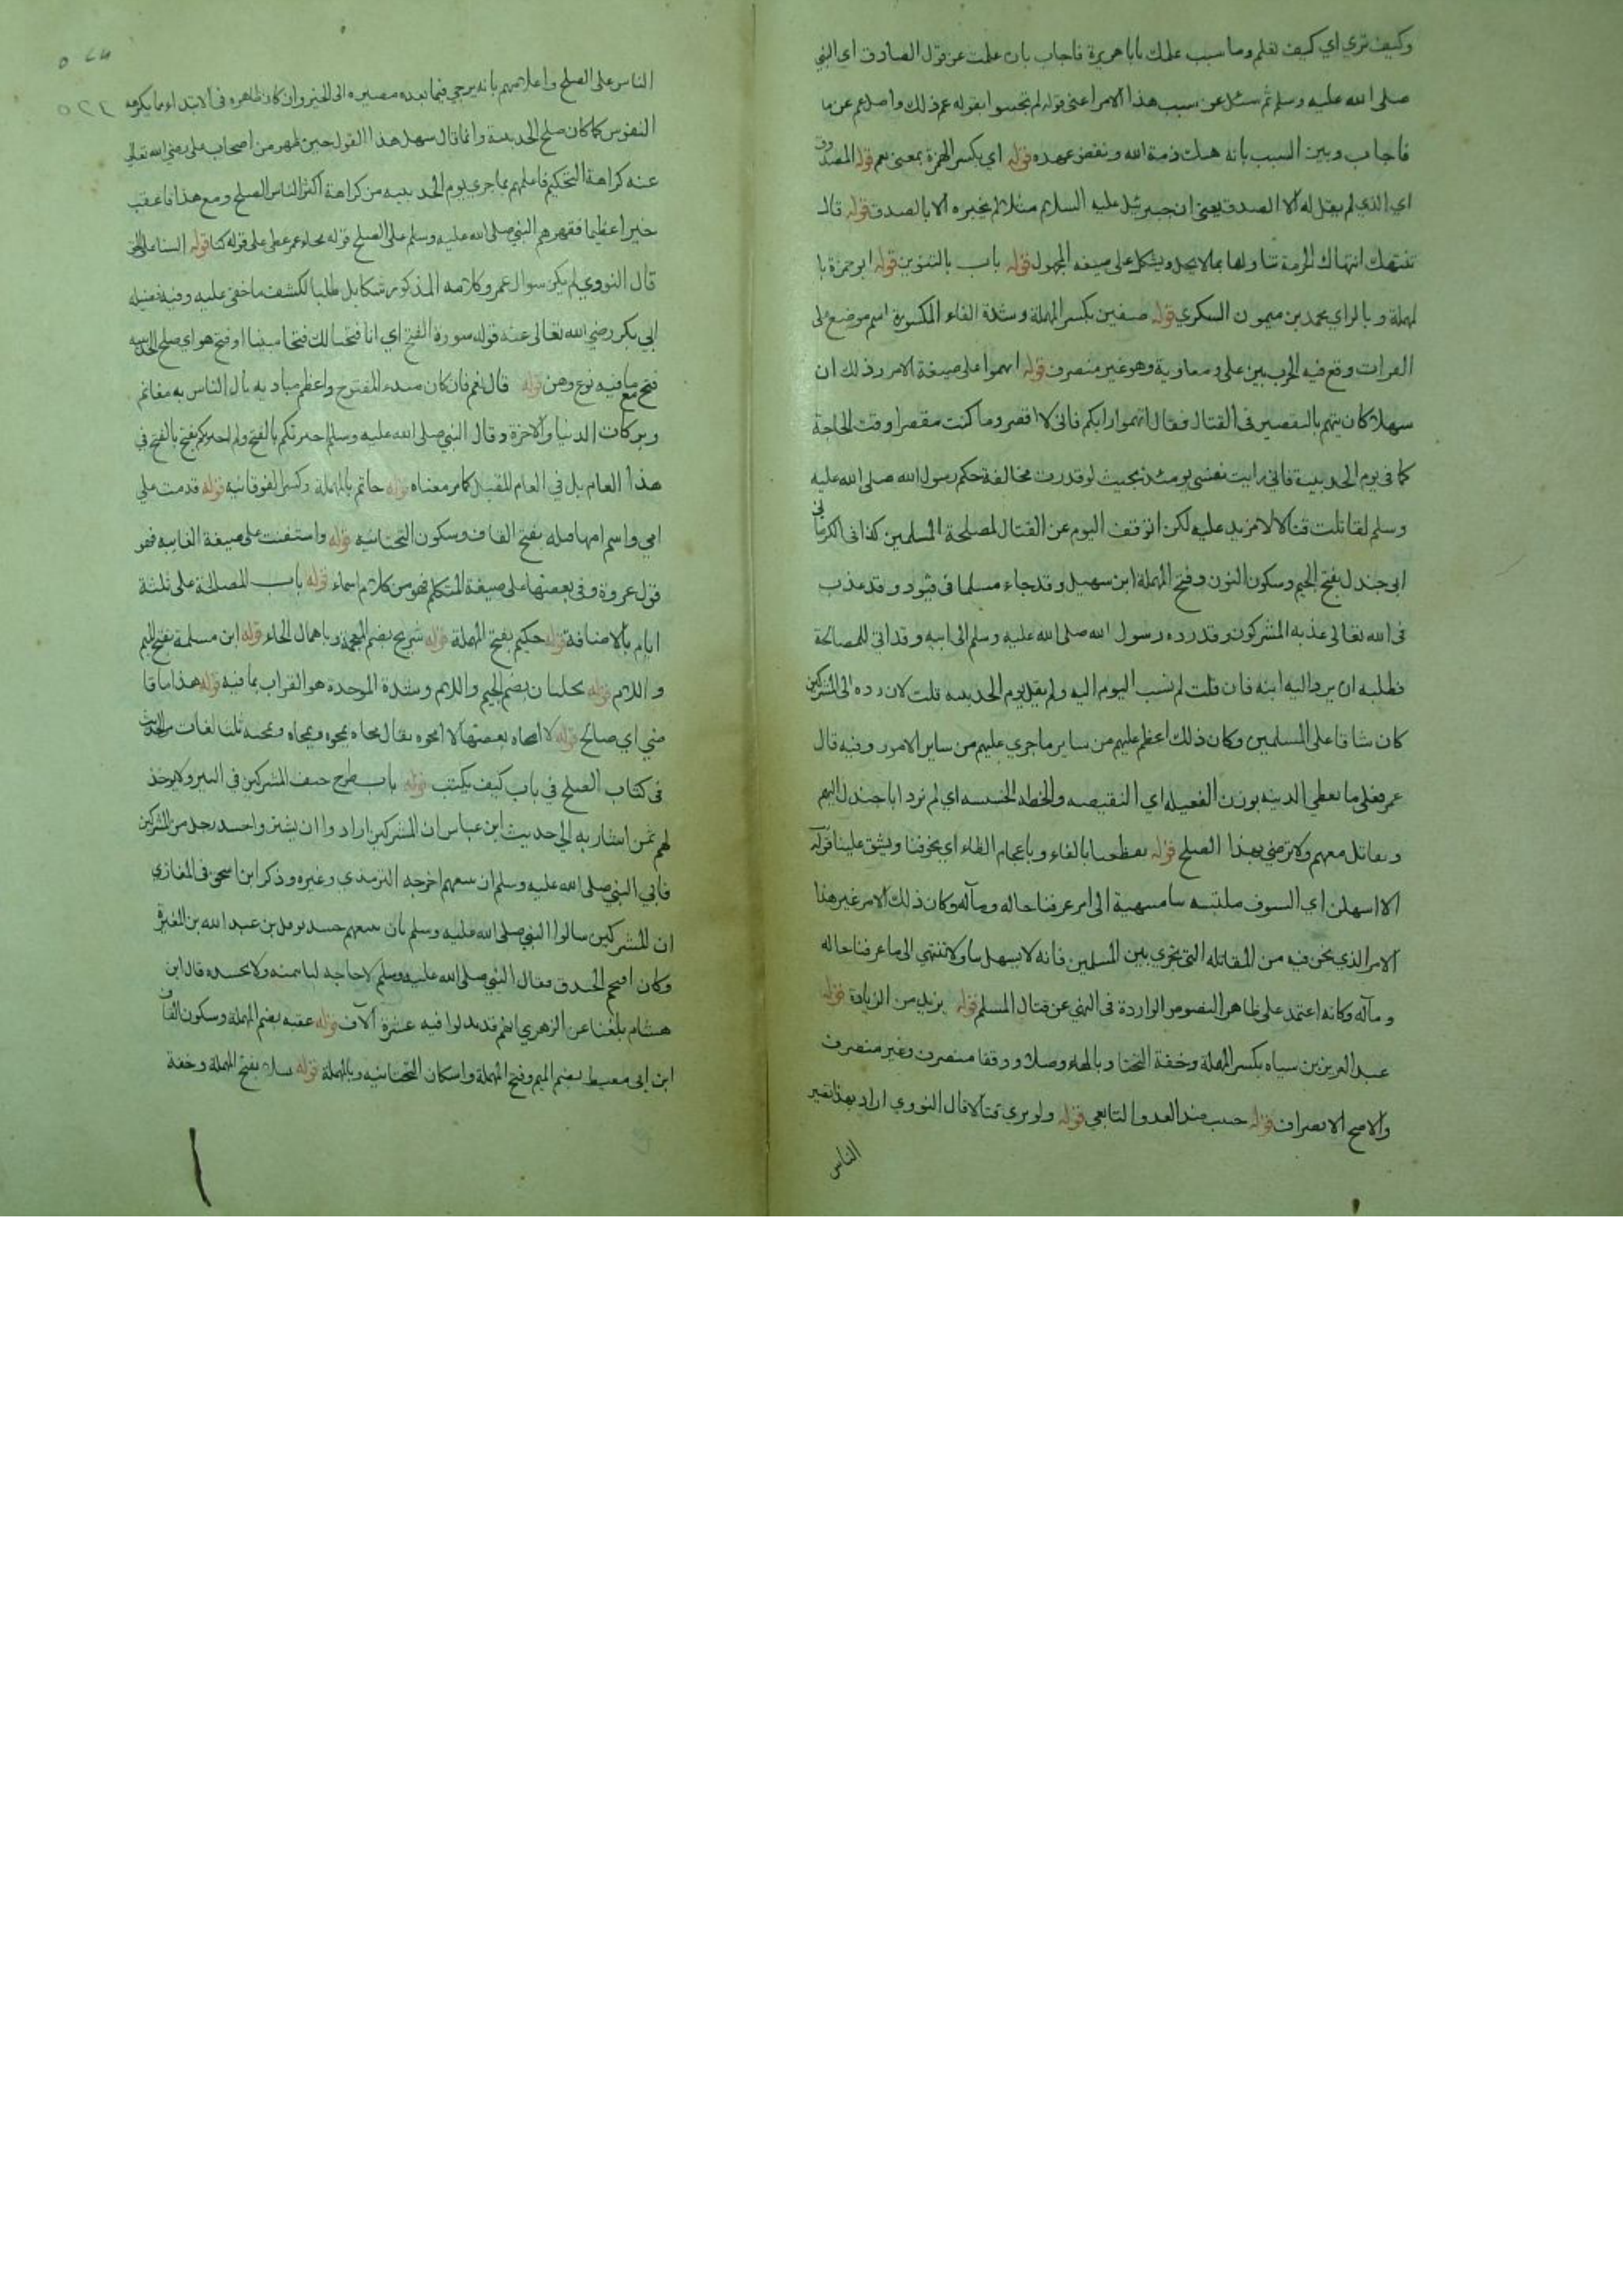 وكيف تري اي كيف تعلم وما سبب علمك يابا هريرة فاجاب بان علمت عن قول الصادق اي النبي
صلى الله عليه وسلم ثم سئل عن سبب هذا الامر اعني قوله لم تجتبوا بقوله عم ذلك واصله عم عن ما
فاجاب وبين السبب بانه هتك ذمة الله ونقض عهده قوله اي بكسر الهمزة بمعنى نعم قوله المصدوق
اي الذي لم يقل له الا الصدق يعني ان جبرئيل عليه السلام مثلا لم يخبره الا بالصدق قوله قال
تنتهك انتهاك الحرمة تناولها بما لا يحل ويشكل على صيغه المجهول قوله باب بالتنوين قوله ابو حمزة با
لمهملة وبالزاي محمد بن ميمون السكري قوله صفين بكسر المهملة وشدة الفاء المكسورة اسم موضع على
الفرات وقع فيه الحرب بين علي ومعاوية وهو غير منصرف قوله اتهموا على صيغة الامر وذلك ان
سهلا كان يتهم بالتقصير في القتال فقال اتهموا رايكم فاني لا اقصر وما كنت مقصرا وقت الحاجة
كما في يوم الحديبية فاني رايت نفسي يومئذ بحيث لو قدرت مخالفة حكم رسول الله صلى الله عليه
وسلم لقاتلت قتالا لا مزيد عليه لكن اتوقف اليوم عن القتال لمصلحة المسلمين كذا في الكرماني
ابي جندل بفتح الجيم وسكون النون وفتح المهملة ابن سهيل وقد جاء مسلما في قيود وقد عذب
في الله تعالى عذبه المشركون وقد رده رسول الله صلى الله عليه وسلم الى ابيه وقد اتي للمصالحة
فطلبه ان يرد اليه ابنه فان قلت لم نسب اليوم اليه ولم يقل يوم الحديبيه قلت لان رده الى المشركين
كان شاقا على المسلمين وكان ذلك اعظم عليهم من ساير ما جري عليهم من ساير الامور وفيه قال
عمر فعلى ما نعطي الدنيه بوزن الفعيله اي النقيصه والخطه الخسيسه اي لم نرد ابا جندل اليهم
ونقاتل معهم ولا نرضي بهذا الصلح قوله يفظعنا بالفاء وباعجام الظاء اي يخوفنا ويشق علينا قوله
الا اسهلن اي السيوف ملتبسه بنا منتهية الى امر عرفنا حاله ومآله وكان ذلك الامر غير هذا
الامر الذي نحن فيه من المقاتله التي تجري بين المسلمين فانه لا يسهل بنا ولا تنتهي الى ما عرفنا حاله
ومآله وكانه اعتمد على ظاهر النصوص الواردة في النهي عن قتال المسلم قوله يزيد من الزيادة قوله
عبد العزيز بن سياه بكسر المهملة وخفة التحتا وبالهاء وصلا ووقفا منصرف وغير منصرف
والاصح الانصراف قوله حبيب ضد العدو التابعي قوله ولو نري قتالا قال النووي اراد بهذا تصبر
الناس
الناس على الصلح واعلامهم بانه يرجي فيما بعده مصيره الى الخير وان كان ظاهره في الابتداء مما يكرهه
النفوس كما كان صلح الحديبية وانما قال سهل هذا القول حين ظهر من اصحاب علي رضي الله تعالى
عنه كراهة التحكيم فاعلمهم بما جري يوم الحديبيه من كراهة اكثر الناس الصلح ومع هذا فاعقب
خيرا عظيما فقهرهم النبي صلى الله عليه وسلم على الصلح قوله فجاء عمر عطف على قوله كنا قوله السنا على الحق
قال النووي لم يكن سوال عمر وكلامه المذكور شكا بل طلبا لكشف ما خفي عليه وفيه فضيلة
ابي بكر رضي الله تعالى عنه قوله سورة الفتح اي انا فتحنا لك فتحا مبينا او فتح هو اي صلح الحديبيه
فتح مع ما فيه نوع وهن قوله قال نعم فان كان مبدء المفتوح واعظم مباديه نال الناس به مغانم
وبركات الدنيا والاخرة وقال النبي صلى الله عليه وسلم اخبرتكم بالفتح ولم اخبركم بفتح بالفتح في
هذا العام بل في العام المقبل كما مر معناه قوله حاتم بالمهملة وكسر الفوقانيه قوله قدمت علي
امي واسم امها قيله بفتح القاف وسكون التحتانيه قوله واستفتت على صيغة الغايبه فهو
قول عروة وفي بعضها على صيغة المتكلم فهو من كلام اسماء قوله باب المصالحة على ثلثة
ايام بالاضافة قوله حكيم بفتح المهملة قوله شريح بضم المعجمة وباهمال الحاء قوله ابن مسلمة بفتح الميم
واللام قوله بجلبان بضم الجيم واللام وشدة الموحدة هو القراب بما فيه قوله هذا ما قا
ضي اي صالح قوله لا امحاه بعضها لا امحوه يقال محاه يمحوه ويمحاه ويمحيه ثلث لغات مر الحديث
في كتاب الصلح في باب كيف يكتب قوله باب طرح جيف المشركين في البير ولا يوخذ
لهم ثمن اشار به الي حديث ابن عباس ان المشركين ارادوا ان يشتروا جسد رجل من المشركين
فابي النبي صلى الله عليه وسلم ان يبيعهم اخرجه الترمذي وغيره وذكر ابن اسحق في المغازي
ان المشركين سالوا النبي صلى الله عليه وسلم بان يبيعهم جسد نوفل بن عبد الله بن المغيرة
وكان اقتحم الخندق فقال النبي صلى الله عليه وسلم لا حاجه لنا بثمنه ولا بجسده قال ابن
هشام بلغنا عن الزهري انهم قد بذلوا فيه عشرة آلاف قوله عقبه بضم المهملة وسكون القاف
ابن ابي معيط بضم الميم وفتح المهملة واسكان التحتانيه وبالمهملة قوله سلا بفتح المهملة وخفة